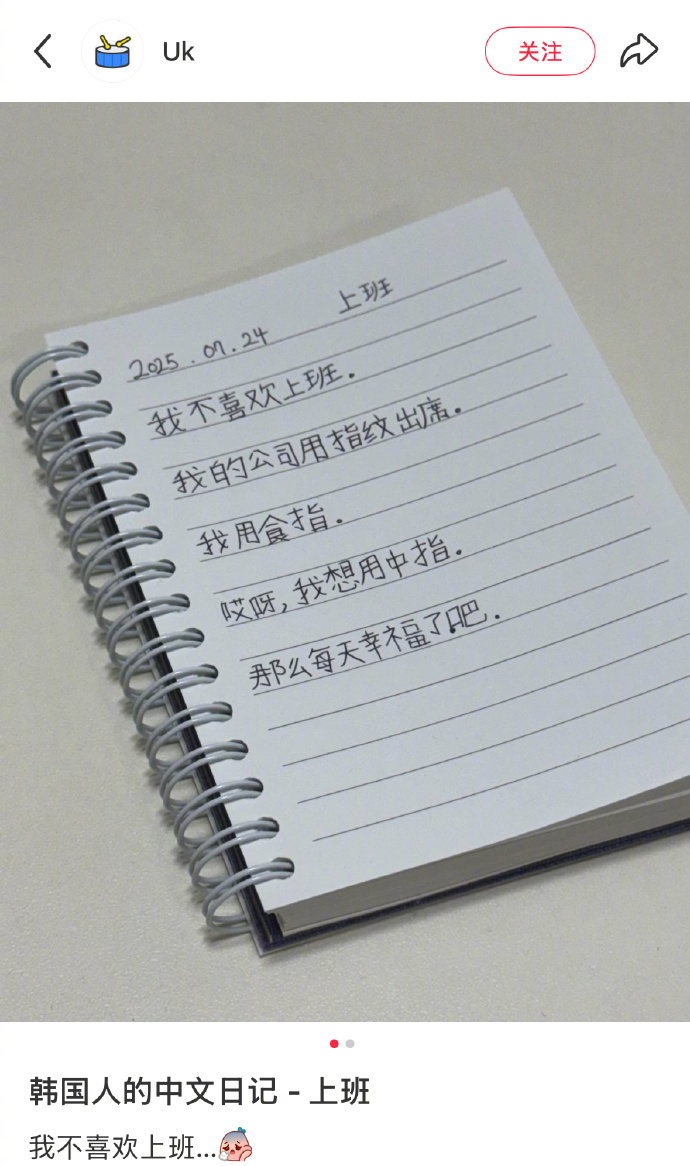 Uk
关注
2025.07.24 上班
我不喜欢上班.
我的公司用指纹出席.
我用食指.
哎呀,我想用中指.
那么每天幸福了吧.
韩国人的中文日记 - 上班
我不喜欢上班...